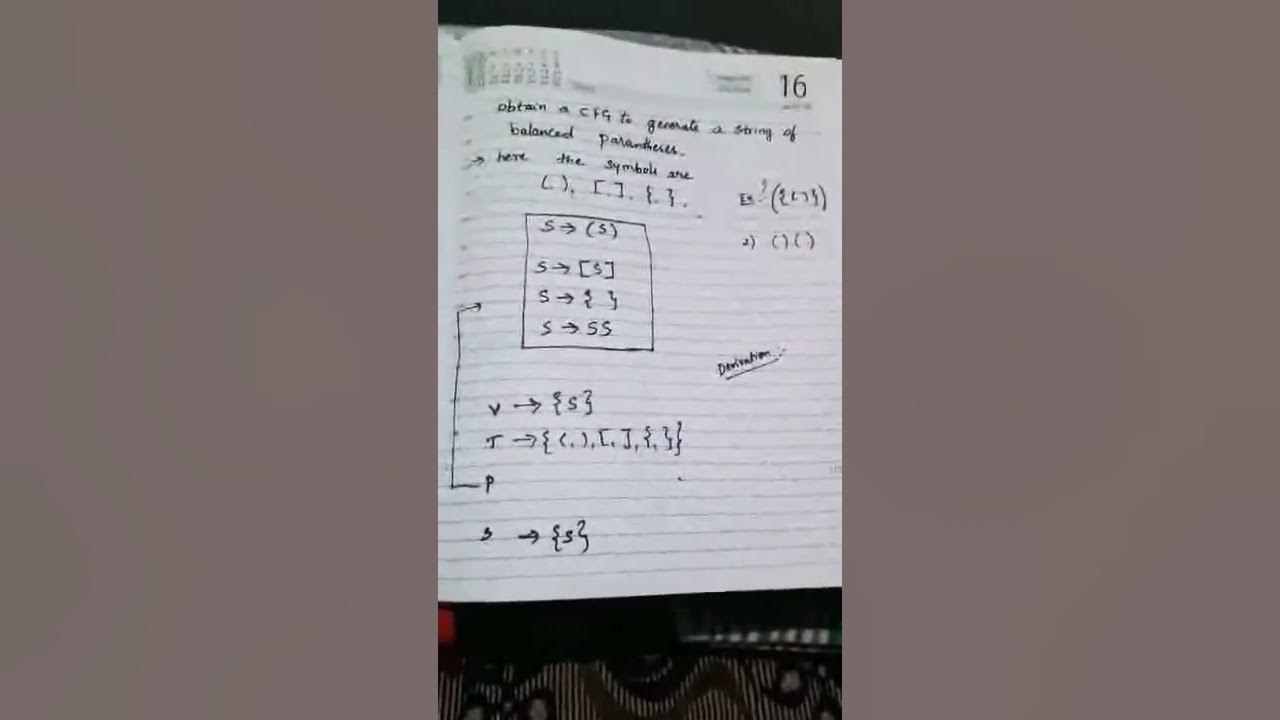 16
obtain a CFG to generate a string of
balanced parantheses.
→ here the symbols are
( ), [ , ], { , }.
Eg:- ({()})
2) ()()
S → (S)
S → [S]
S → { }
S → SS
Derivation:-
V → {S}
T → { (, ), [, ], {, } }
P
S → {S}